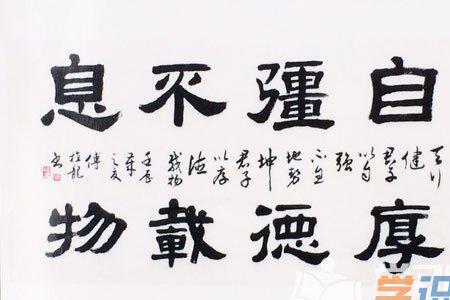 自彊不息
天行健君子以自強不息地势坤君子以厚德载物壬辰之夏傅桂龍书
厚德載物
学识